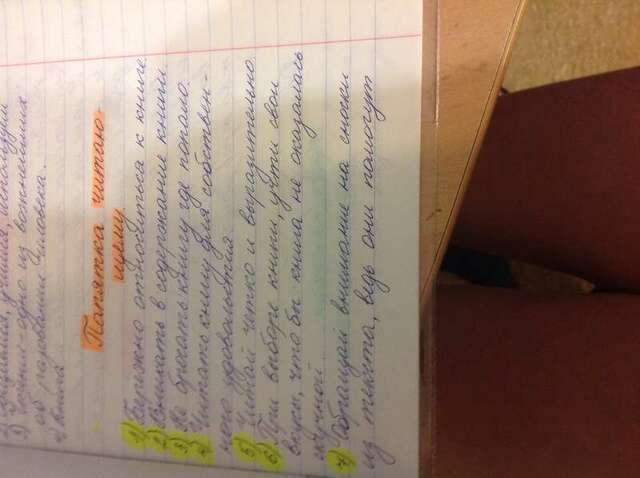 3) Чтение - одно из важнейших
об разований человека.
4) Книга
Памятка читаю-
щему
1) Бережно относиться к книге
2) Вникать в содержание книги
3) Не бросать книгу где попало.
4) Читать книгу для собствен-
ного удовольствия
5) Читай чётко и выразительно
6) При выборе книги, учти свои
вкусы, что бы книга не оказалась
скучной
7) Обращай внимание на сноски
из текста, ведь они помогут